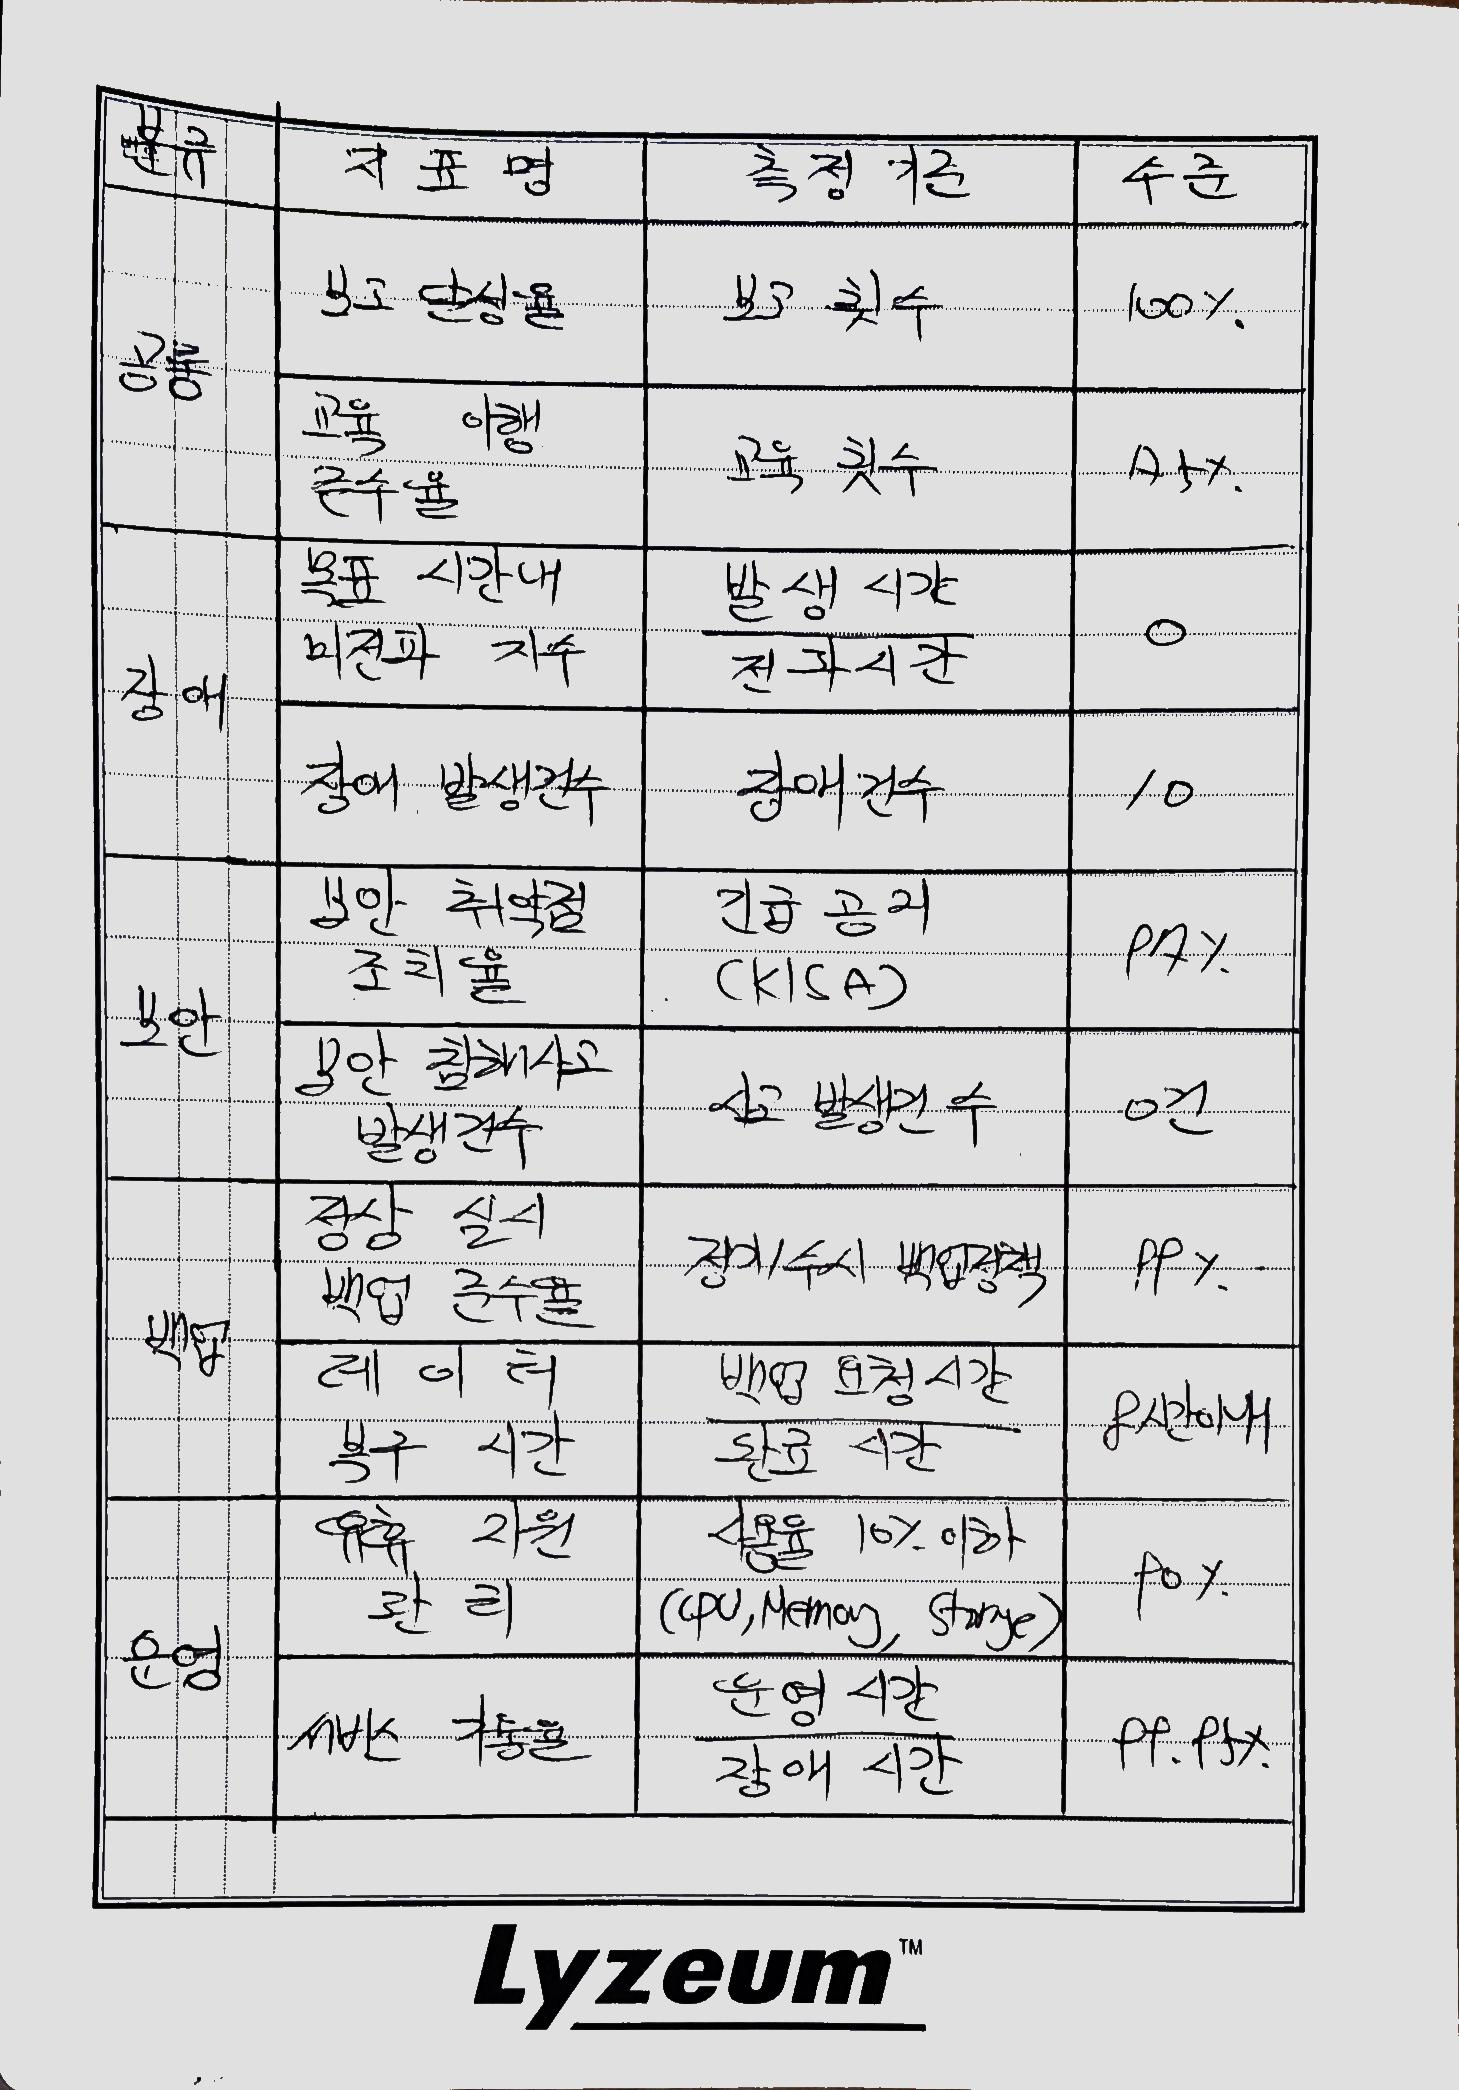 분류 지표명 측정기준 수준
공통
보고 달성율 보고 횟수 100%.
교육 이행
준수율
교육 횟수
장애
목표 시간내
미전파 지수
발생 시간
전파시간
0
장애 발생건수 장애건수 10
보안
보안 취약점
조치율
긴급 공지
(KISA)
보안 침해사고
발생건수
사고 발생건수 0건
백업
정상 실시
백업 준수율
정기/수시 백업정책 99%.
데이터
복구 시간
백업 요청시간
완료 시간
8시간이내
운영
유휴 자원
관리
사용율 10%이하
(CPU, Memory, Storage)
90%.
서비스 가동율
운영 시간
장애 시간
99.95%.
Lyzeum™